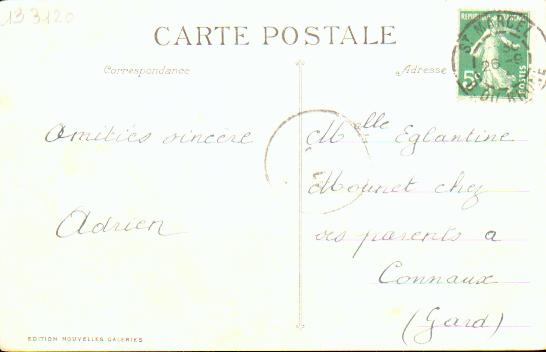 133120
CARTE POSTALE
Correspondance
Adresse
REPUBLIQUE FRANÇAISE
5
POSTES
ST MARCEL
26 -9
DU RHONE
Amitiés sincere
Adrien
Mlle Eglantine
Mounet chez
ses parents a
Connaux
(Gard)
EDITION NOUVELLES GALERIES